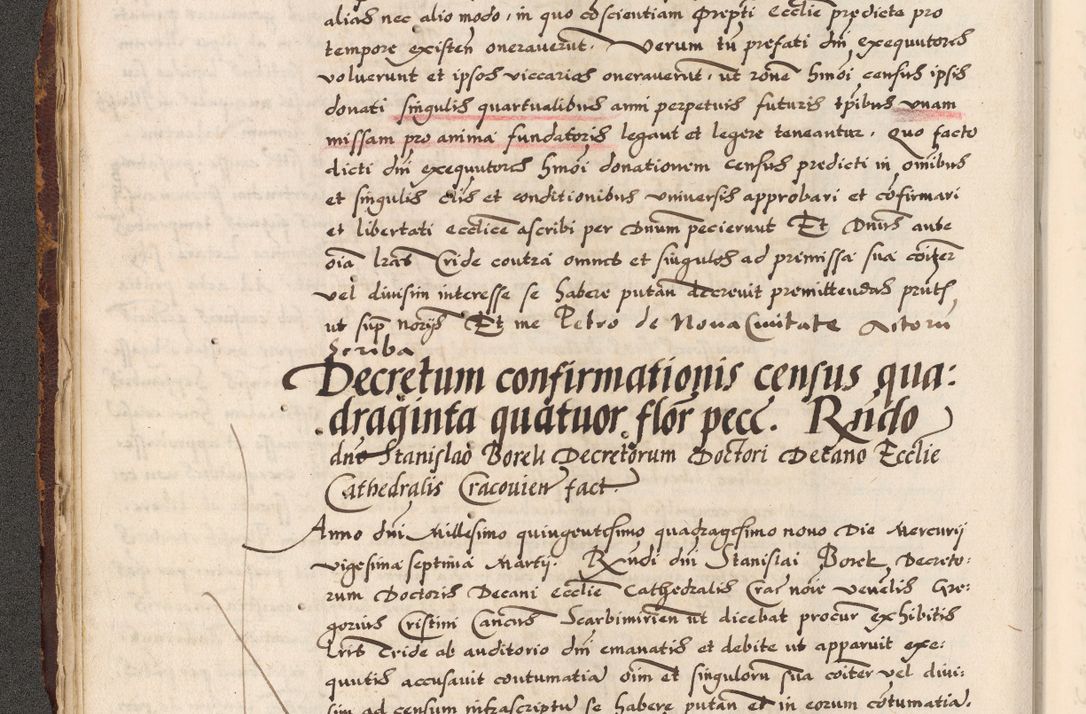 alias nec alio modo, in quo cōscientiam Prepti Ecclie predicte pro
tempore existeñ oneraverūt. Verum tñ prefati dñi exequutores
voluerunt et ipsos viccarios oneraverūt, ut rōne hmōi census ipsis
donati singulis quartualibus anni perpetuis futuris tp̄ibus vnam
missam pro anima fundatoris legant et legere teneantur. Quo facto
dicti dñi exequutores hmōi donationem census predicti in om̄ibus
et singulis clis et conditionibus vniversis approbari et cōfirmari
et libertati eccl̄ice ascribi per Dnūm pecierunt Et Dnūs ante
oīa lrās Cride contra omnes et singulos ad premissa sua cōiter
vel divisim interesse se habere putañ decrevit premittendas prūts,
ut sup̄ noriis Et me Petro de Nova Civitate Actorū
Scriba
Decretum confirmationis census qua:
draginta quatuor flor̄ pecc. Rn̄do
dno Stanislao Borek Decretorum Doctori Decano Ecclie
Cathedralis Cracovieñ fact.
Anno dñi Millesimo quingentesimo quadragesimo nono Die Mercurij
vigesima septima Martij. Rn̄di dñi Stanislai Borek, Decreto:
rum Doctoris Decani ecclie Cathedralis Crac noīe venelis Gre:
gorius Cristini Cancus Scarbimirieñ ut dicebat procur exhibitis
lris Cride ab auditorio dñi emanatis et debite ut apparuit exe:
quutis accusavit contumatia om̄ et singulorū sua cōiter vel divi:
sim ad censum infrascriptū se habere putañ et in eorum cōtumatia,